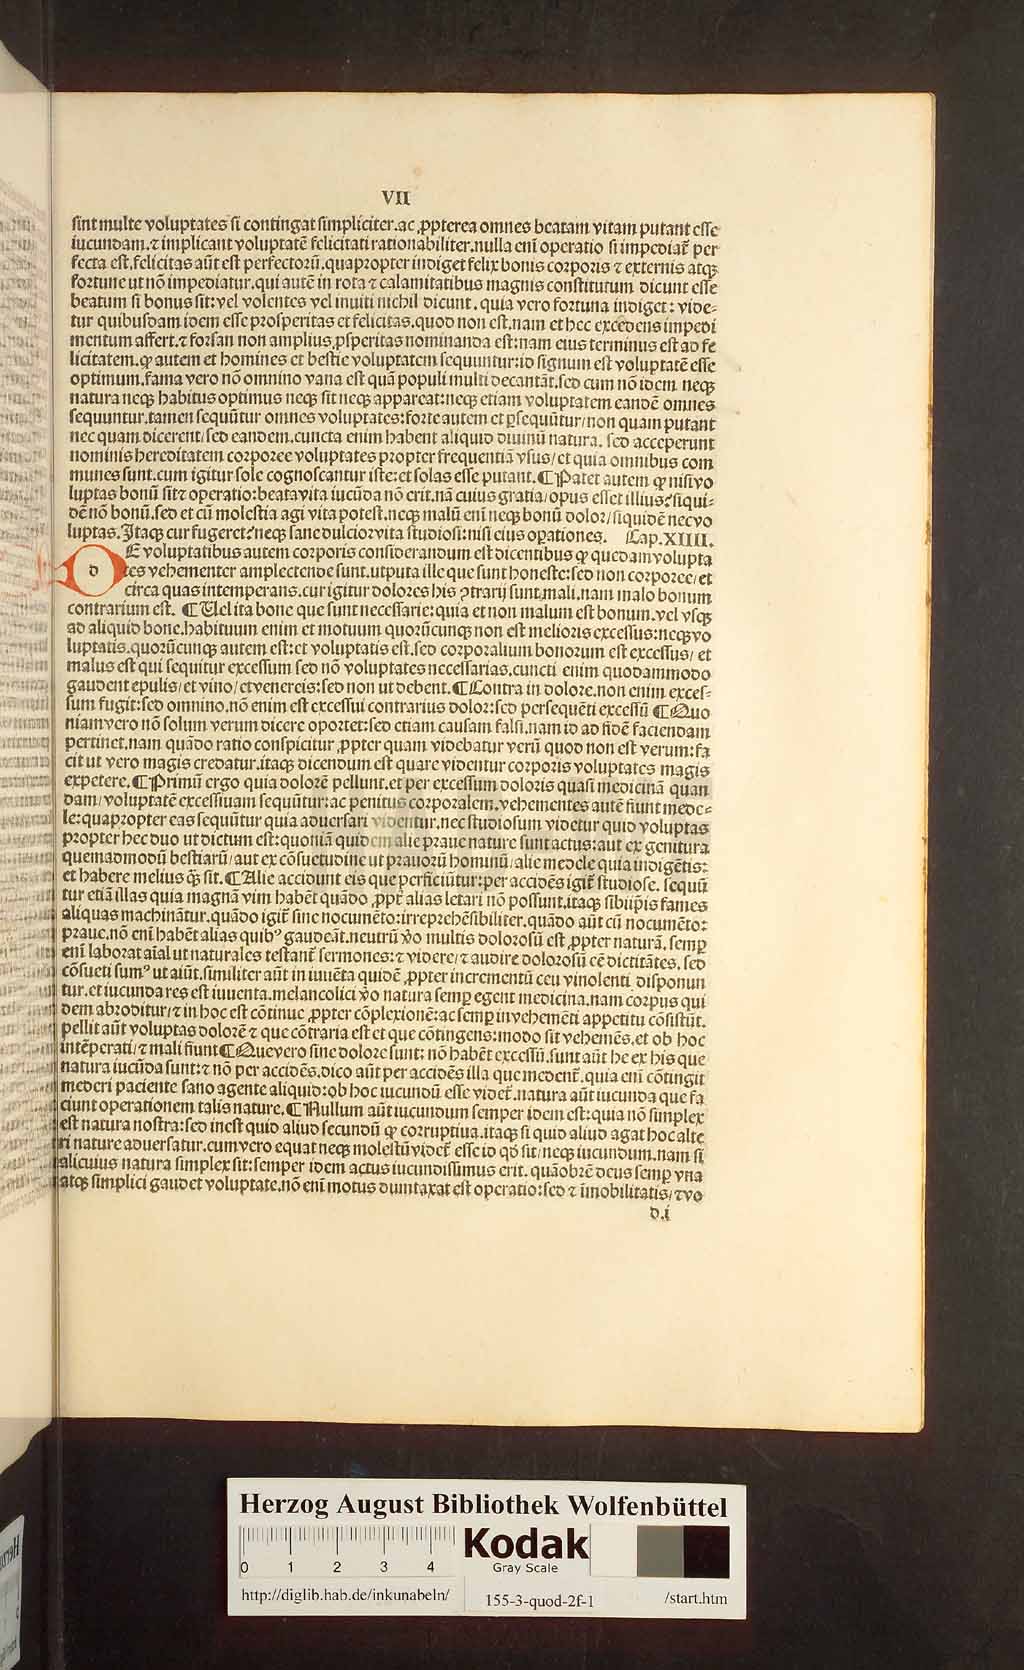 VII
sint multe voluptates si contingat simpliciter.ac ꝓpterea omnes beatam vitam putant esse
iucundam.⁊ implicant voluptatē felicitati rationabiliter.nulla enī operatio si impediat᷑ per
fecta est.felicitas aūt est perfectorū.quapropter indiget felix bonis corporis ⁊ externis atqꝫ
fortune ut nō impediatur.qui autē in rota ⁊ calamitatibus magnis constitutum dicunt esse
beatum si bonus sit: vel volentes vel inuiti nichil dicunt. quia vero fortuna indiget: vide-
tur quibusdam idem esse prosperitas et felicitas.quod non est.nam et hec excedens impedi
mentum affert.⁊ forsan non amplius ꝓsperitas nominanda est:nam eius terminus est ad fe
licitatem.ꝙ autem et homines et bestie voluptatem sequuntur:id signum est voluptatē esse
optimum.fama vero nō omnino vana est quā populi multi decantāt.sed cum nō idem neqꝫ
natura neqꝫ habitus optimus neqꝫ sit neqꝫ appareat:neqꝫ etiam voluptatem eandē omnes
sequuntur.tamen sequūtur omnes voluptates:forte autem et ꝑsequūtur/non quam putant
nec quam dicerent/sed eandem.cuncta enim habent aliquid diuinū natura. sed acceperunt
nominis hereditatem corporee voluptates propter frequentiā vsus/et quia omnibus com
munes sunt.cum igitur sole cognoscantur iste:et solas esse putant.¶Patet autem ꝙ nisi vo
luptas bonū sit ⁊ operatio:beata vita iucūda nō erit.nā cuius gratia/opus esset illius?siqui-
dē nō bonū.sed et cū molestia agi vita potest.neqꝫ malū enī neqꝫ bonū dolor/siquidē nec vo
luptas.Itaqꝫ cur fugeret?neqꝫ sane dulcior vita studiosi:nisi eius oꝑationes. Cap.XIIII.
d
E voluptatibus autem corporis considerandum est dicentibus ꝙ quedam volupta
tes vehementer amplectende sunt.utputa ille que sunt honeste:sed non corporee/et
circa quas intemperans.cur igitur dolores his ꝯtrarij sunt mali.nam malo bonum
contrarium est. ¶Uel ita bone que sunt necessarie:quia et non malum est bonum.vel vsqꝫ
ad aliquid bone.habituum enim et motuum quorūcunqꝫ non est melioris excessus:neqꝫ vo
luptatis.quorūcunqꝫ autem est:et voluptatis est.sed corporalium bonorum est excessus/ et
malus est qui sequitur excessum sed nō voluptates necessarias.cuncti enim quodammodo
gaudent epulis/et vino/et venereis:sed non ut debent.¶Contra in dolore.non enim exces-
sum fugit:sed omnino.nō enim est excessui contrarius dolor:sed persequēti excessū ¶Quo
niam vero nō solum verum dicere oportet:sed etiam causam falsi.nam id ad fidē faciendam
pertinet.nam quādo ratio conspicitur ꝓpter quam videbatur verū quod non est verum:fa
cit ut vero magis credatur.itaqꝫ dicendum est quare videntur corporis voluptates magis
expetere.¶Primū ergo quia dolorē pellunt.et per excessum doloris quasi medicinā quan
dam/voluptatē excessiuam sequūtur:ac penitus corporalem.vehementes autē fiunt mede-
le:quapropter eas sequūtur quia aduersari videntur.nec studiosum videtur quid voluptas
propter hec duo ut dictum est:quoniā quidem alie praue nature sunt actus:aut ex genitura
quemadmodū bestiarū/aut ex cōsuetudine ut prauorū hominū/alie medele quia indigētis:
et habere melius qꝫ̄ sit.¶Alie accidunt eis que perficiūtur:per accidēs igit᷑ studiose. sequū
tur etiā illas quia magnā vim habēt quādo ꝓpt᷑ alias letari nō possunt.itaqꝫ sibiipīs fames
aliquas machinātur.quādo igit᷑ sine nocumēto:irreprehēsibiliter.quādo aūt cū nocumēto:
praue.nō enī habēt alias quibꝰ gaudeāt.neutrū v̄o multis dolorosū est ꝓpter naturā. semꝑ
enī laborat aīal ut naturales testant᷑ sermones:⁊ videre/⁊ audire dolorosū eē dictitātes. sed
cōsueti sumꝰ ut aiūt.similiter aūt in iuuēta quidē ꝓpter incrementū ceu vinolenti disponun
tur.et iucunda res est iuuenta.melancolici v̄o natura semꝑ egent medicina.nam corpus qui
dem abroditur/⁊ in hoc est cōtinue ꝓpter cōplexionē:ac semꝑ in vehemēti appetitu cōsistūt.
pellit aūt voluptas dolorē ⁊ que cōtraria est et que cōtingens:modo sit vehemēs.et ob hoc
intēperati/⁊ mali fiunt¶Que vero sine dolore sunt: nō habēt excessū.sunt aūt he ex his que
natura iucūda sunt:⁊ nō per accidēs.dico aūt per accidēs illa que medent᷑.quia enī cōtingit
mederi paciente sano agente aliquid:ob hoc iucundū esse videt᷑.natura aūt iucunda que fa
ciunt operationem talis nature.¶Nullum aūt iucundum semper idem est:quia nō simplex
est natura nostra:sed inest quid aliud secundū ꝙ corruptiua.itaqꝫ si quid aliud agat hoc alte
ri nature aduersatur.cum vero equat neqꝫ molestū videt᷑ esse id qd̄ sit/neqꝫ iucundum.nam si
alicuius natura simplex sit:semper idem actus iucundissimus erit. quāobrē deus semꝑ vna
atqꝫ simplici gaudet voluptate.nō enī motus dumtaxat est operatio:sed ⁊ īmobilitatis/⁊ vo
d.i
Herzog August Bibliothek Wolfenbüttel
0 1 2 3 4
Kodak
Gray Scale
http://diglib.hab.de/inkunabeln/
155-3-quod-2f-1
/start.htm